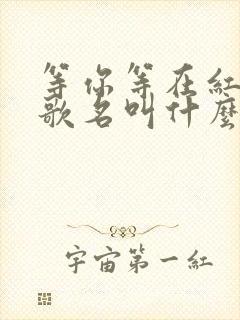 等你等在紅
歌名叫什麼
宇宙第一紅